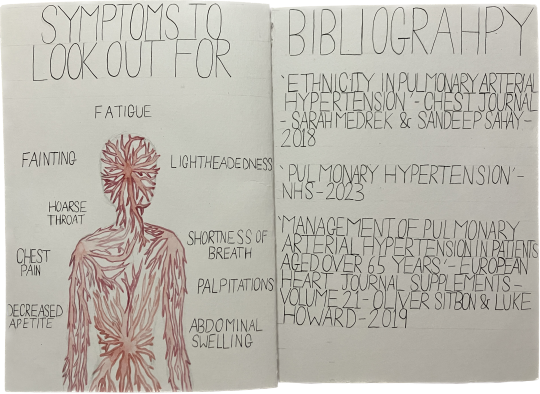 SYMPTOMS TO
LOOK OUT FOR
FATIGUE
FAINTING
LIGHTHEADEDNESS
HOARSE
THROAT
SHORTNESS OF
BREATH
CHEST
PAIN
PALPITATIONS
DECREASED
APETITE
ABDOMINAL
SWELLING
BIBLIOGRAHPY
'ETHNICITY IN PULMONARY ARTERIAL
HYPERTENSION' - CHEST JOURNAL
- SARAH MEDREK & SANDEEP SAHAY -
2018
'PULMONARY HYPERTENSION' -
NHS - 2023
'MANAGEMENT OF PULMONARY
ARTERIAL HYPERTENSION IN PATIENTS
AGED OVER 65 YEARS' - EUROPEAN
HEART JOURNAL SUPPLEMENTS -
VOLUME 21 - OLIVER SITBON & LUKE
HOWARD - 2019